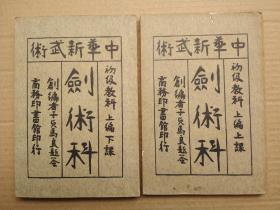 中華新武術
初級教科 上編上課
劍術科
創編者子貞馬良
商務印書館印行
中華新武術
初級教科 上編下課
劍術科
創編者子貞馬良
商務印書館印行